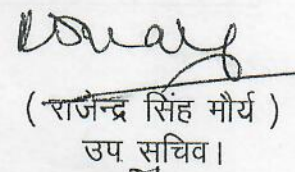 ( राजेन्द्र सिंह मौर्य )
उप सचिव।